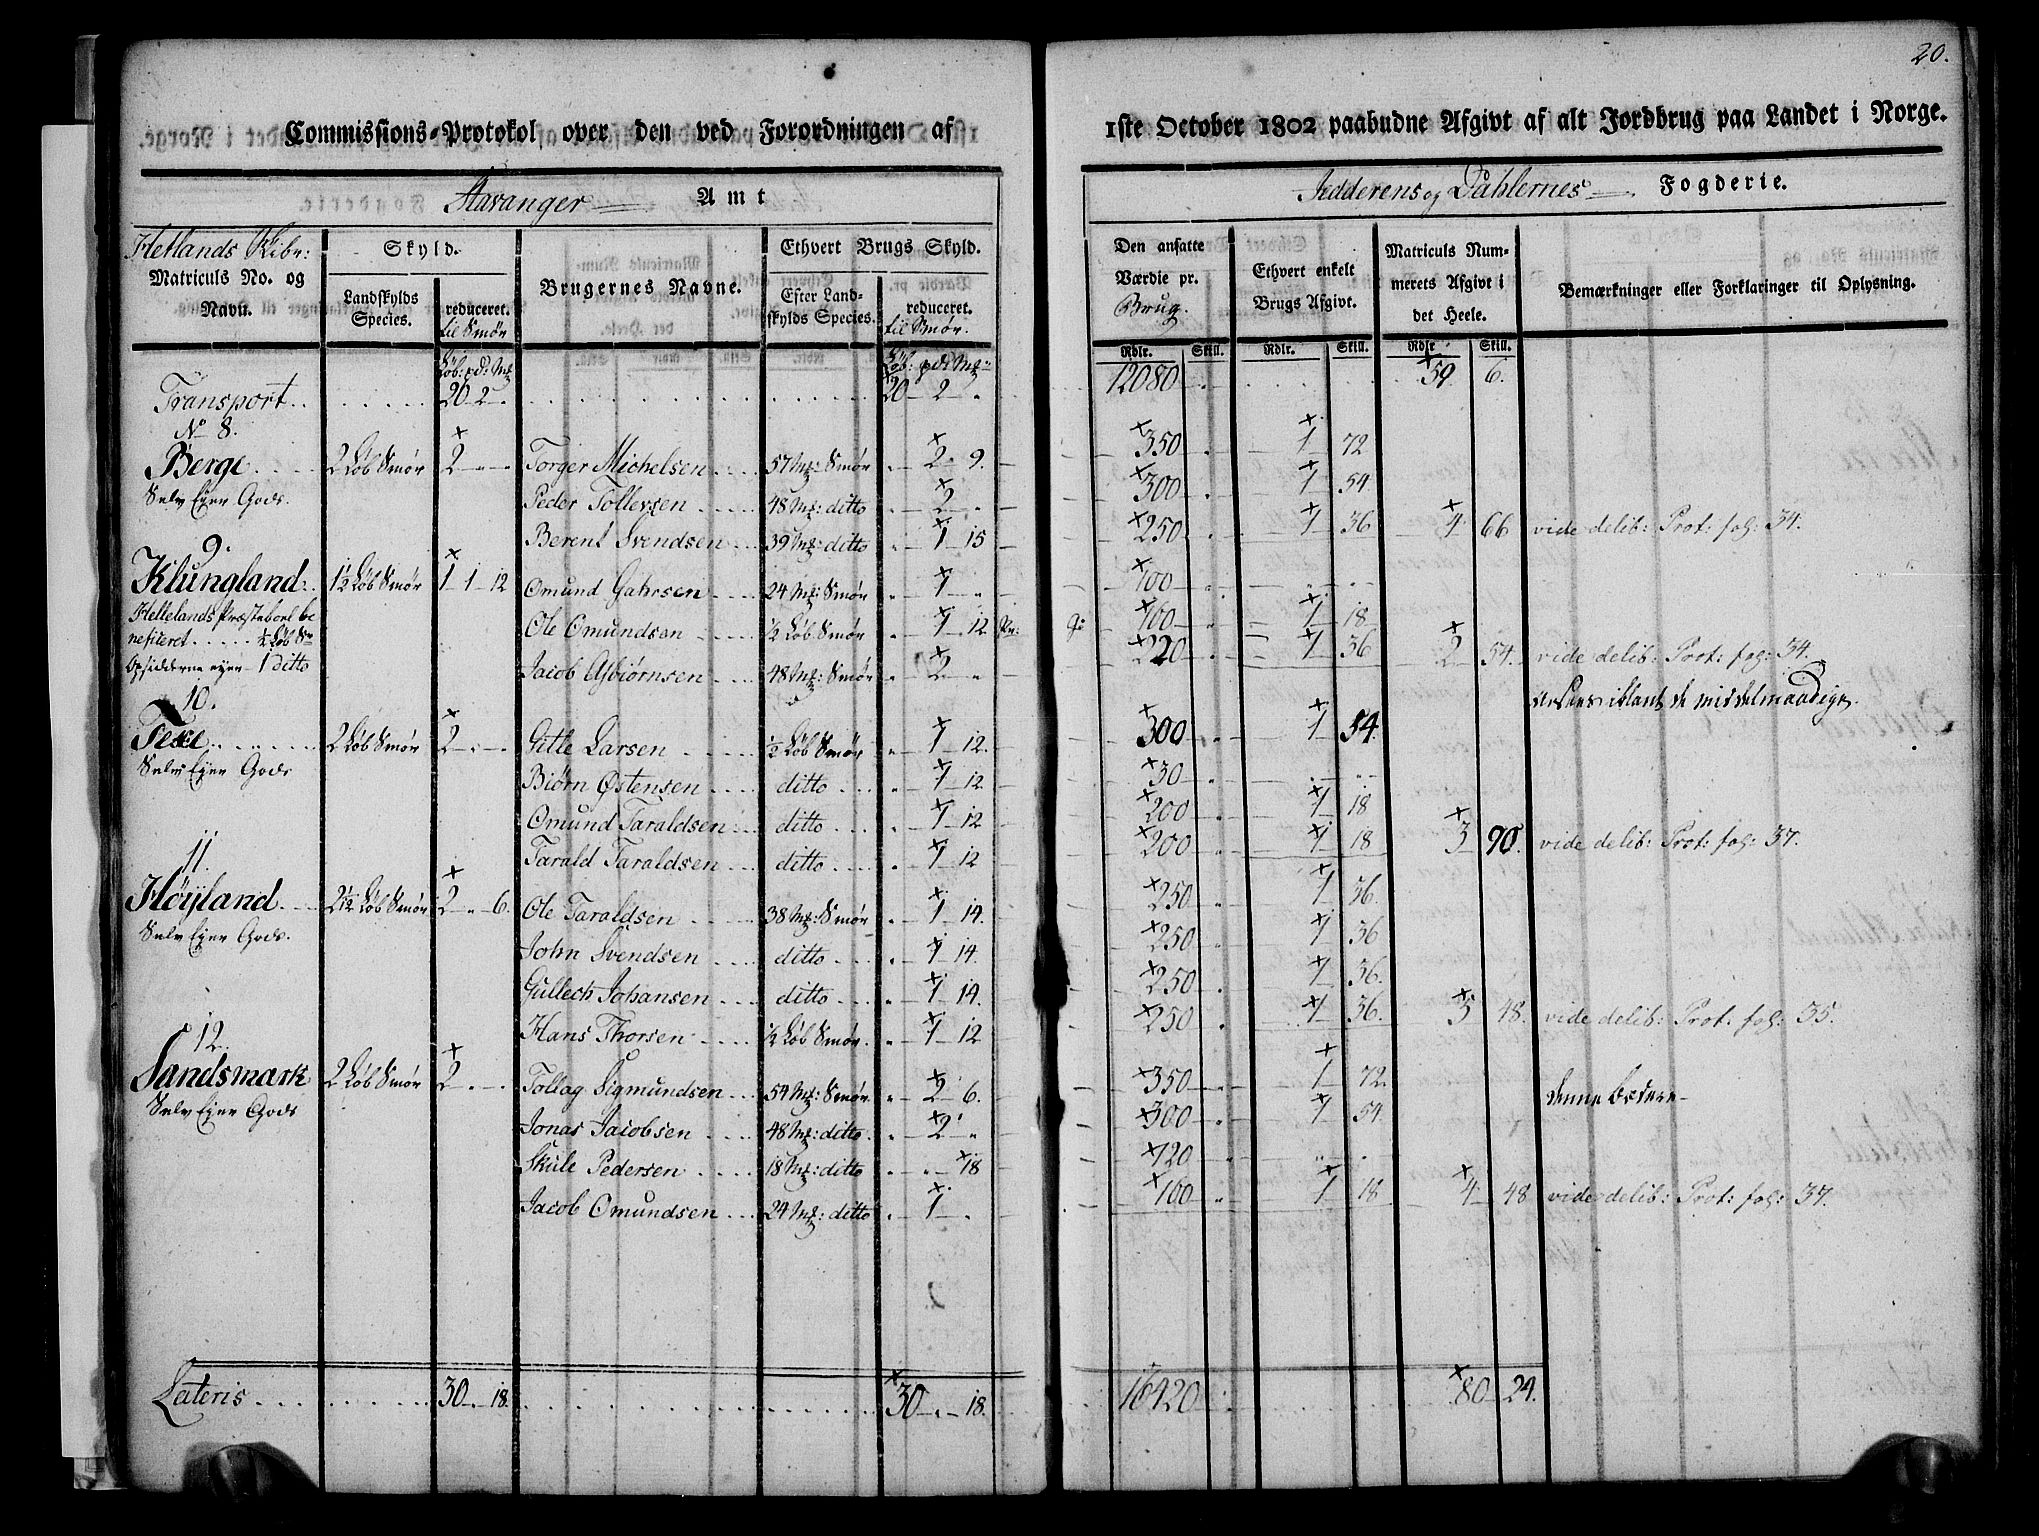 20.
Commissions-Protokol over den ved Forordningen af 1ste October 1802 paabudne Afgivt af alt Jordbrug paa Landet i Norge.
Stavanger Amt
Jedderens og Dahlernes Fogderie.
Hetlands Skibr:
Matriculs No. og Navn.
Skyld.
Landskylds Species.
reduceret. til Smør
Brugernes Navne.
Ethvert Brugs Skyld.
Efter Landskylds Species.
reduceret. til Smør.
Den ansatte Værdie pr. Brug.
Ethvert enkelt Brugs Afgivt.
Matriculs Nummerets Afgivt i det Heele.
Bemærkninger eller Forklaringer til Oplysning.
Løb: pd: Mk Løb: pd: Mk: Rdlr. Skill. Rdlr. Skill. Rdlr. Skill.
Transport . . . . . 20 - 2 - . . . . . 20 - 2 - " 12080 - . . . . 59 6.
No 8.
Berge . . . . 2 Løb Smør 2 - " - Torger Michelsen . . . . 57 Mk: Smør " - 2 - 9. 350 1 72
Selv Ejer Gods. Peder Tollevsen . . . . 48 Mk: ditto " - 2 - " 300 1 54
Berent Svendsen . . 39 Mk: ditto " - 1 - 15 250 1 36 4 66 vide delib: Prot: fol: 34.
9.
Klungland . . 1½ Løb Smør 1 - 1 - 12 Omund Gahrsen . . . . 24 Mk: Smør " - 1 - " 100 - " - "
Hellelands Præstebord be
neficeret . . . . ½ Løb Sr Ole Omundsen . . . . ½ Løb Smør " - 1 - 12 100 1 18
Opsidderne ejer 1 ditto Jacob Asbiørnsen . . . 48 Mk: Smør " - 2 - " 220 1 36 2 54. vide delib: Prot: fol: 34.
iblant de middelmaadige.
10.
Texe . . . . . 2 Løb Smør 2 - " - Gitle Larsen . . . . ½ Løb Smør " - 1 - 12. 300 1 54.
Selv Ejer Gods Biørn Østensen . . . . ditto . . . . " - 1 - 12 30 " "
Omund Taraldsen . . . ditto . . . . " - 1 - 12 200 1 18
Tarald Taraldsen . . . . ditto . . . . " - 1 - 12 200 1 18 3 90. vide delib: Prot: fol: 37.
11.
Høyland . . . 2½ Løb Smør 2 - " - 6. Ole Taraldsen . . . . 38 Mk: Smør " - 1 - 14. 250 1 36.
Selv Ejer Gods. John Svendsen . . . . ditto . . . . " - 1 - 14. 250 1 36
Gullech Johansen . . . ditto . . . . " - 1 - 14. 250 1 36.
Hans Thorsen . . . . ½ Løb Smør. " - 1 - 12 250 1 36. 5 48. vide delib: Prot: fol: 35.
12.
Sandsmark 2 Løb Smør 2 - " - " Tollag Sigmundsen . . 54 Mk: Smør " - 2 - 6. 350 1 72. denne bedere
Selv Ejer Gods Jonas Jacobsen . . . 48 Mk: ditto . " - 2 - " 300 1 54
Skule Pedersen . . . . 18 Mk: ditto " - " - 18 120 " "
Jacob Omundsen . . . 24 Mk: ditto " - 1 - " 100 1 18 4 48 vide delib: Prot: fol: 37.
Lateris . . . . . . . 30 - " - 18. . . . . . 30 - " - 18. 16420 80 24.